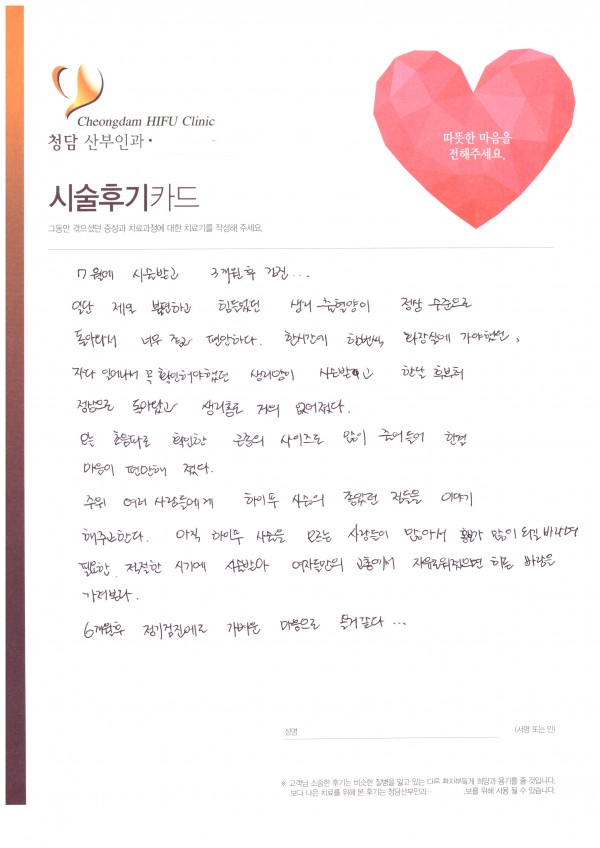 Cheongdam HIFU Clinic
청담 산부인과·
따뜻한 마음을
전해주세요.
시술후기카드
그동안 겪으셨던 증상과 치료과정에 대한 치료기를 작성해 주세요.
7월에 시술받고 3개월후 검진...
일단 제일 불편하고 힘들었던 생리 출혈양이 정상 수준으로
돌아와서 너무 좋고 편안하다. 한시간에 한번씩, 화장실에 가야했던,
자다 일어나서 꼭 확인해야했던 생리양이 시술받고 한달 후부터
정상으로 돌아왔고 생리통도 거의 없어졌다.
또는 초음파로 확인한 근종의 사이즈도 많이 줄어들어 한결
마음이 편안해 졌다.
주위 여러 사람들에게 하이푸 시술의 좋았던 점들을 이야기
해주고한다. 아직 하이푸 시술을 모르는 사람들이 많아서 홍보가 많이 되길 바라며
필요한 적절한 시기에 시술받아 여자들만의 고통에서 자유로워졌으면 하는 바램을
가져본다.
6개월후 정기검진에도 가벼운 마음으로 들러갈다...
성명
(서명 또는 인)
※ 고객님 소중한 후기는 비슷한 질병을 앓고 있는 다른 환자분들께 희망과 용기를 줄 것입니다.
보다 나은 치료를 위해 본 후기는 청담산부인과· 보를 위해 사용 될 수 있습니다.